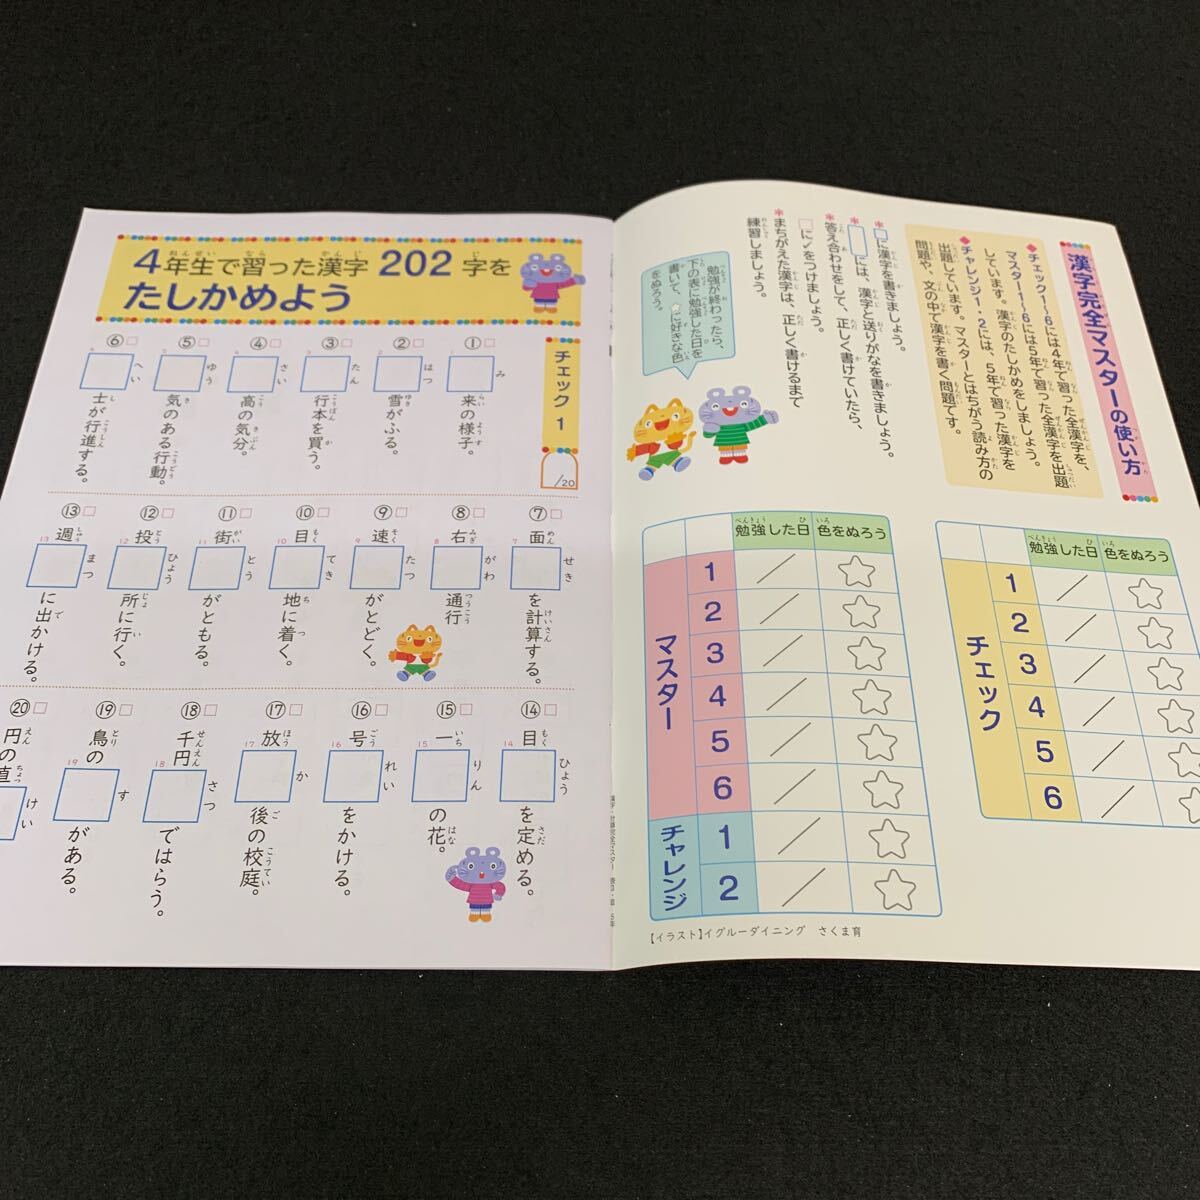 漢字完全マスターの使い方
◆チェック1〜6には4年で習った全漢字を、
マスター1〜6には5年で習った全漢字を出題
しています。漢字のたしかめをしましょう。
◆チャレンジ1・2には、5年で習った漢字を
出題しています。マスターとはちがう読み方の
問題や、文の中で漢字を書く問題です。
＊□に漢字を書きましょう。
＊□には、漢字と送りがなを書きましょう。
答え合わせをして、正しく書けていたら、
□に✓をつけましょう。
＊まちがえた漢字は、正しく書けるまで
練習しましょう。
勉強が終わったら、
下の表に勉強した日を
書いて、☆に好きな色
をぬろう。
勉強した日 色をぬろう
チェック
1 / ☆
2 / ☆
3 / ☆
4 / ☆
5 / ☆
6 / ☆
勉強した日 色をぬろう
マスター
1 / ☆
2 / ☆
3 / ☆
4 / ☆
5 / ☆
6 / ☆
チャレンジ
1 / ☆
2 / ☆
【イラスト】イグルーダイニング さくま育
4年生で習った漢字202字を
たしかめよう
チェック1
/20
①□ □み来の様子。
②□ □はつ雪がふる。
③□ □たん行本を買う。
④□ □さい高の気分。
⑤□ □ゆう気のある行動。
⑥□ □へい士が行進する。
⑦□ 面□せきを計算する。
⑧□ 右□がわ通行
⑨□ 速□たつがとどく。
⑩□ 目□てき地に着く。
⑪□ 街□とうがともる。
⑫□ 投□ひょう所に行く。
⑬□ 週□まつに出かける。
⑭□ 目□ひょうを定める。
⑮□ 一□りんの花。
⑯□ 号□れいをかける。
⑰□ 放□か後の校庭。
⑱□ 千円□さつではらう。
⑲□ 鳥の□すがある。
⑳□ 円の直□けい